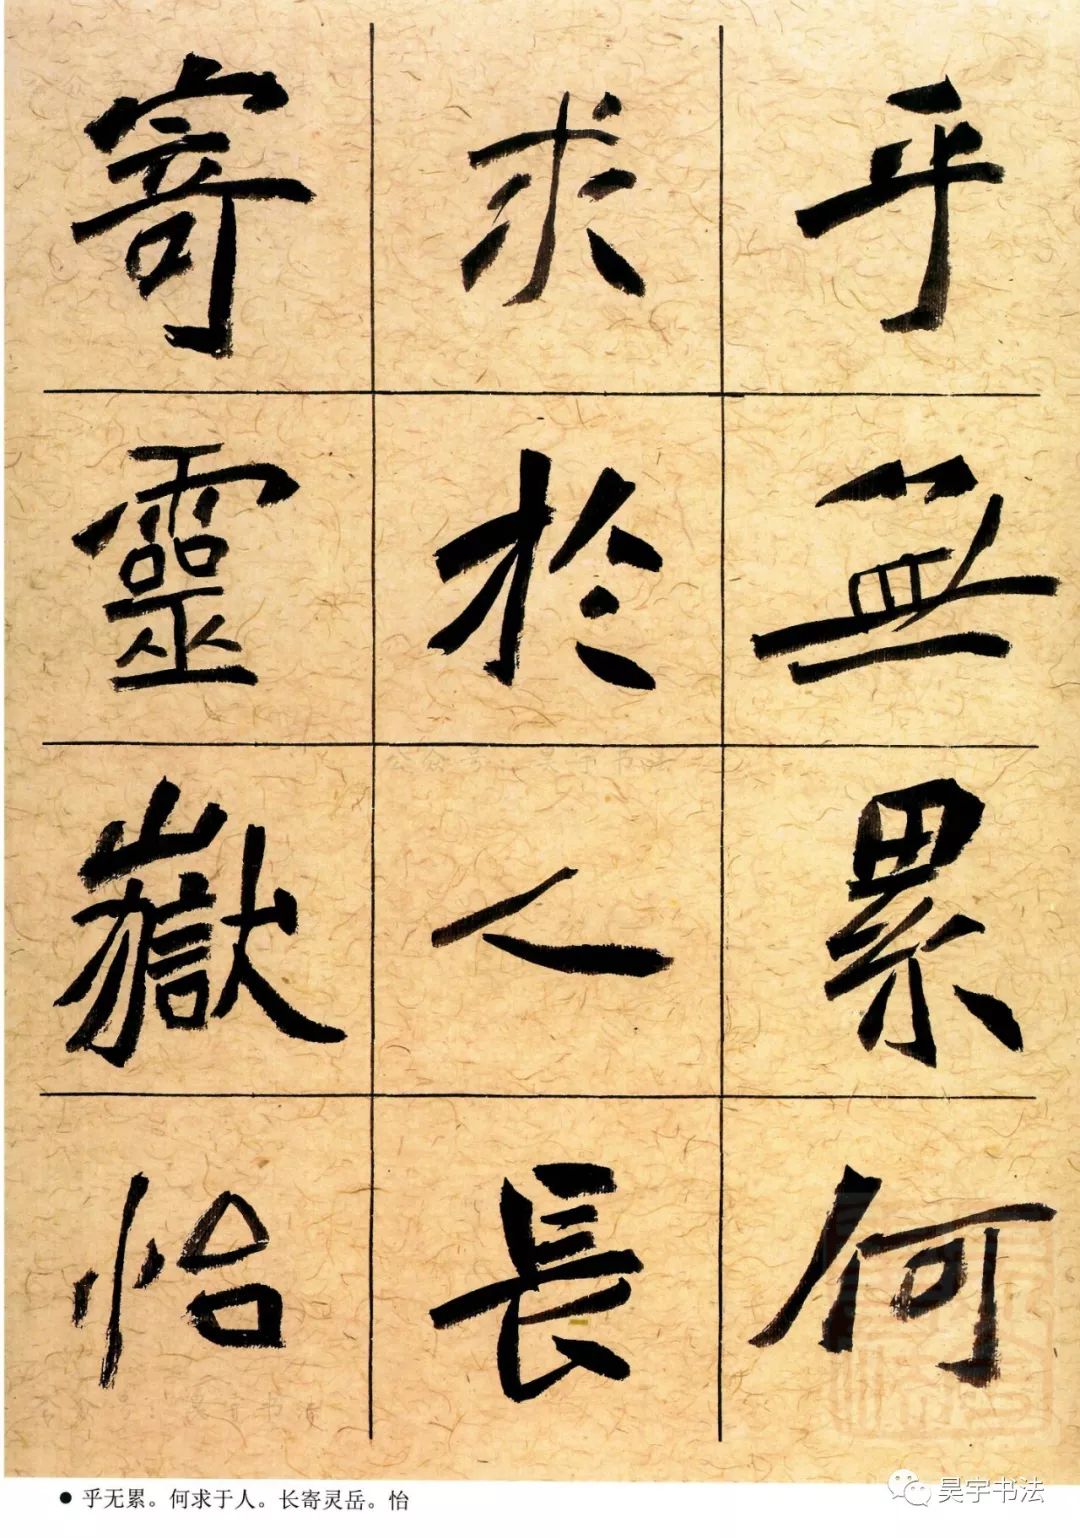 乎無累何
求於人長
寄靈嶽怡
● 乎无累。何求于人。长寄灵岳。怡
昊宇书法